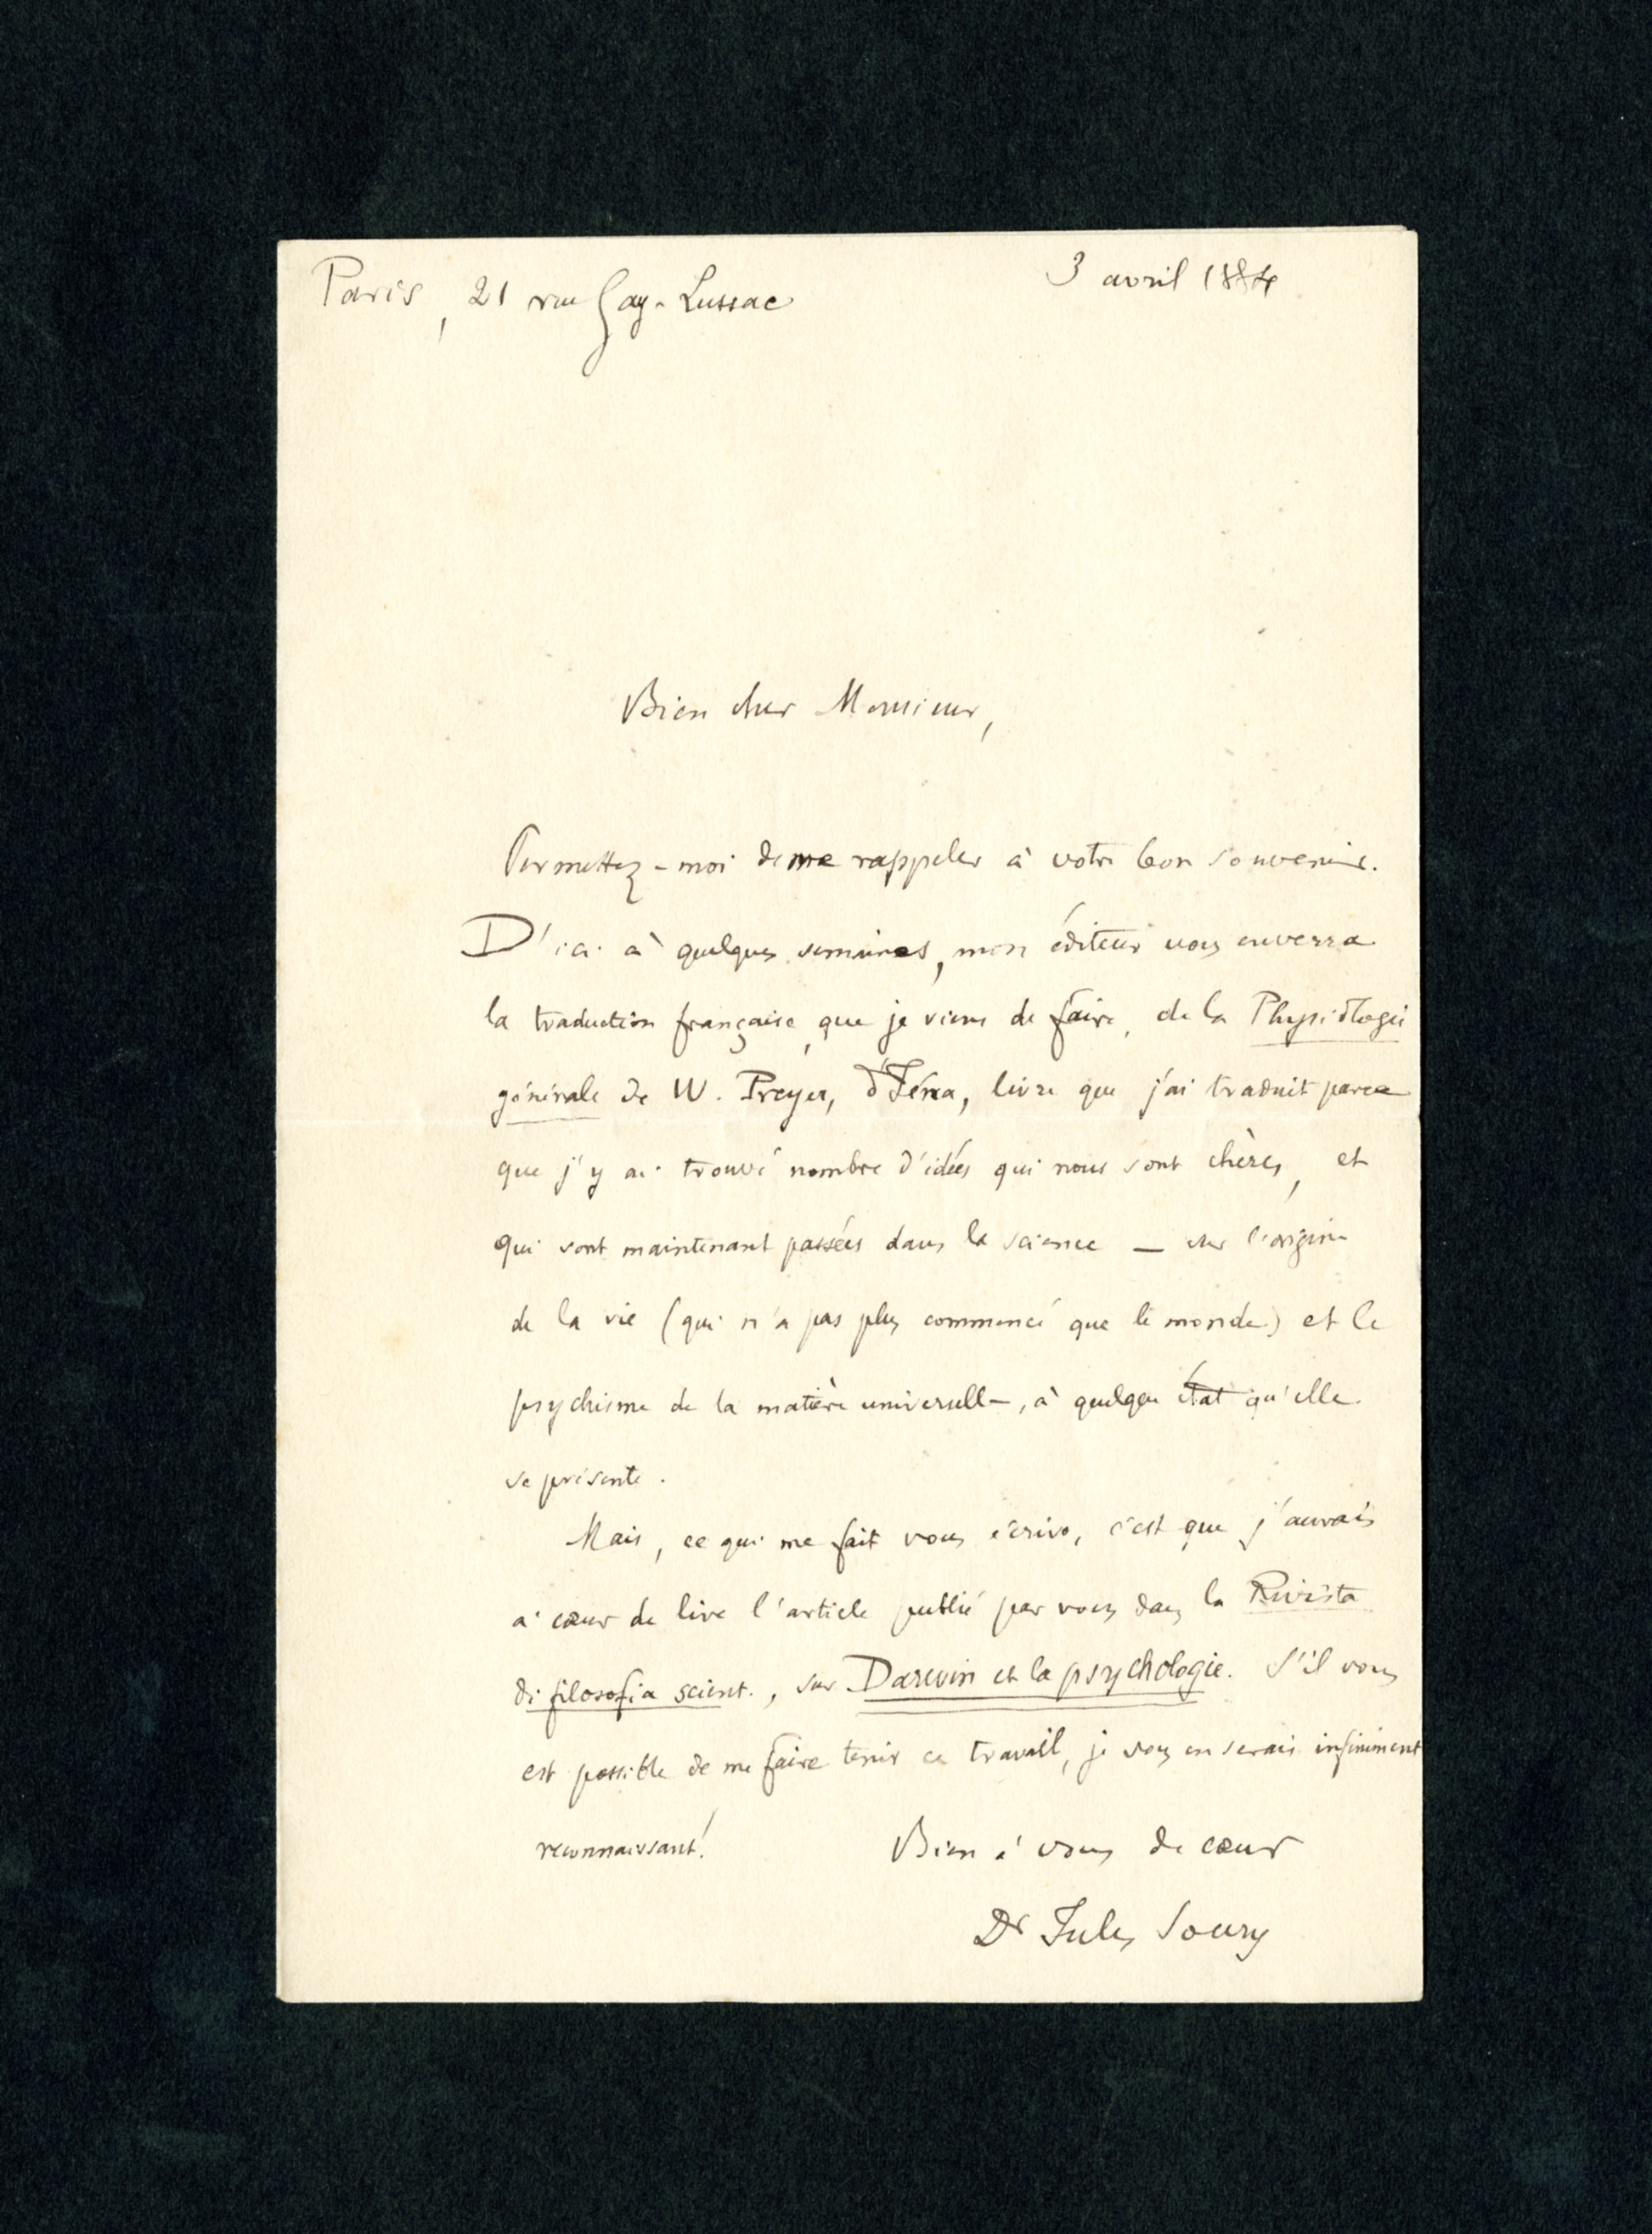 Paris, 21 rue Gay-Lussac
3 avril 1884
Bien cher Monsieur,
Permettez-moi de me rappeler à votre bon souvenir.
D'ici à quelques semaines, mon éditeur vous enverra
la traduction française, que je viens de faire, de la Physiologie
générale de W. Preyer, d'Iéna, livre que j'ai traduit parce
que j'y ai trouvé nombre d'idées qui nous sont chères, et
qui sont maintenant passées dans la science — sur l'origine
de la vie (qui n'a pas plus commencé que le monde) et le
psychisme de la matière universelle, à quelque état qu'elle
se présente.
Mais, ce qui me fait vous écrire, c'est que j'aurais
à cœur de lire l'article publié par vous dans la Rivista
di filosofia scient., sur Darwin et la psychologie. S'il vous
est possible de me faire tenir ce travail, je vous en serais infiniment
reconnaissant!
Bien à vous de cœur
Dr Jules Soury